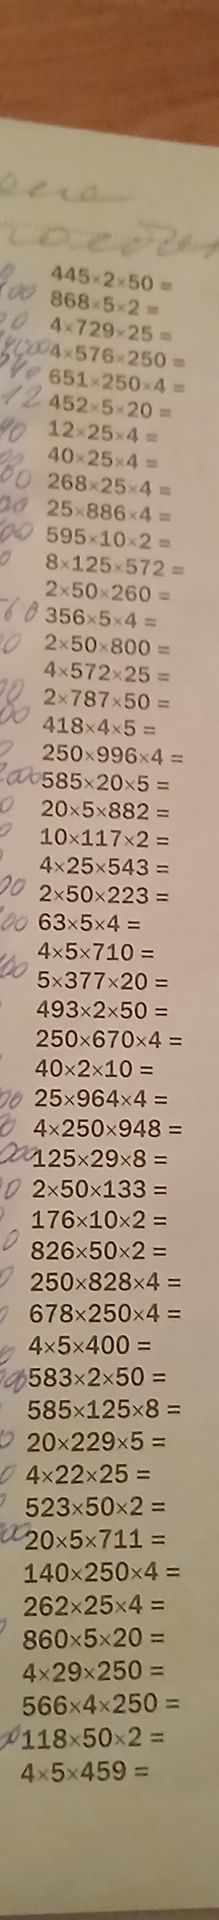 445×2×50 =
868×5×2 =
4×729×25 =
4×576×250 =
651×250×4 =
452×5×20 =
12×25×4 =
40×25×4 =
268×25×4 =
25×886×4 =
595×10×2 =
8×125×572 =
2×50×260 =
356×5×4 =
2×50×800 =
4×572×25 =
2×787×50 =
418×4×5 =
250×996×4 =
585×20×5 =
20×5×882 =
10×117×2 =
4×25×543 =
2×50×223 =
63×5×4 =
4×5×710 =
5×377×20 =
493×2×50 =
250×670×4 =
40×2×10 =
25×964×4 =
4×250×948 =
125×29×8 =
2×50×133 =
176×10×2 =
826×50×2 =
250×828×4 =
678×250×4 =
4×5×400 =
583×2×50 =
585×125×8 =
20×229×5 =
4×22×25 =
523×50×2 =
20×5×711 =
140×250×4 =
262×25×4 =
860×5×20 =
4×29×250 =
566×4×250 =
118×50×2 =
4×5×459 =